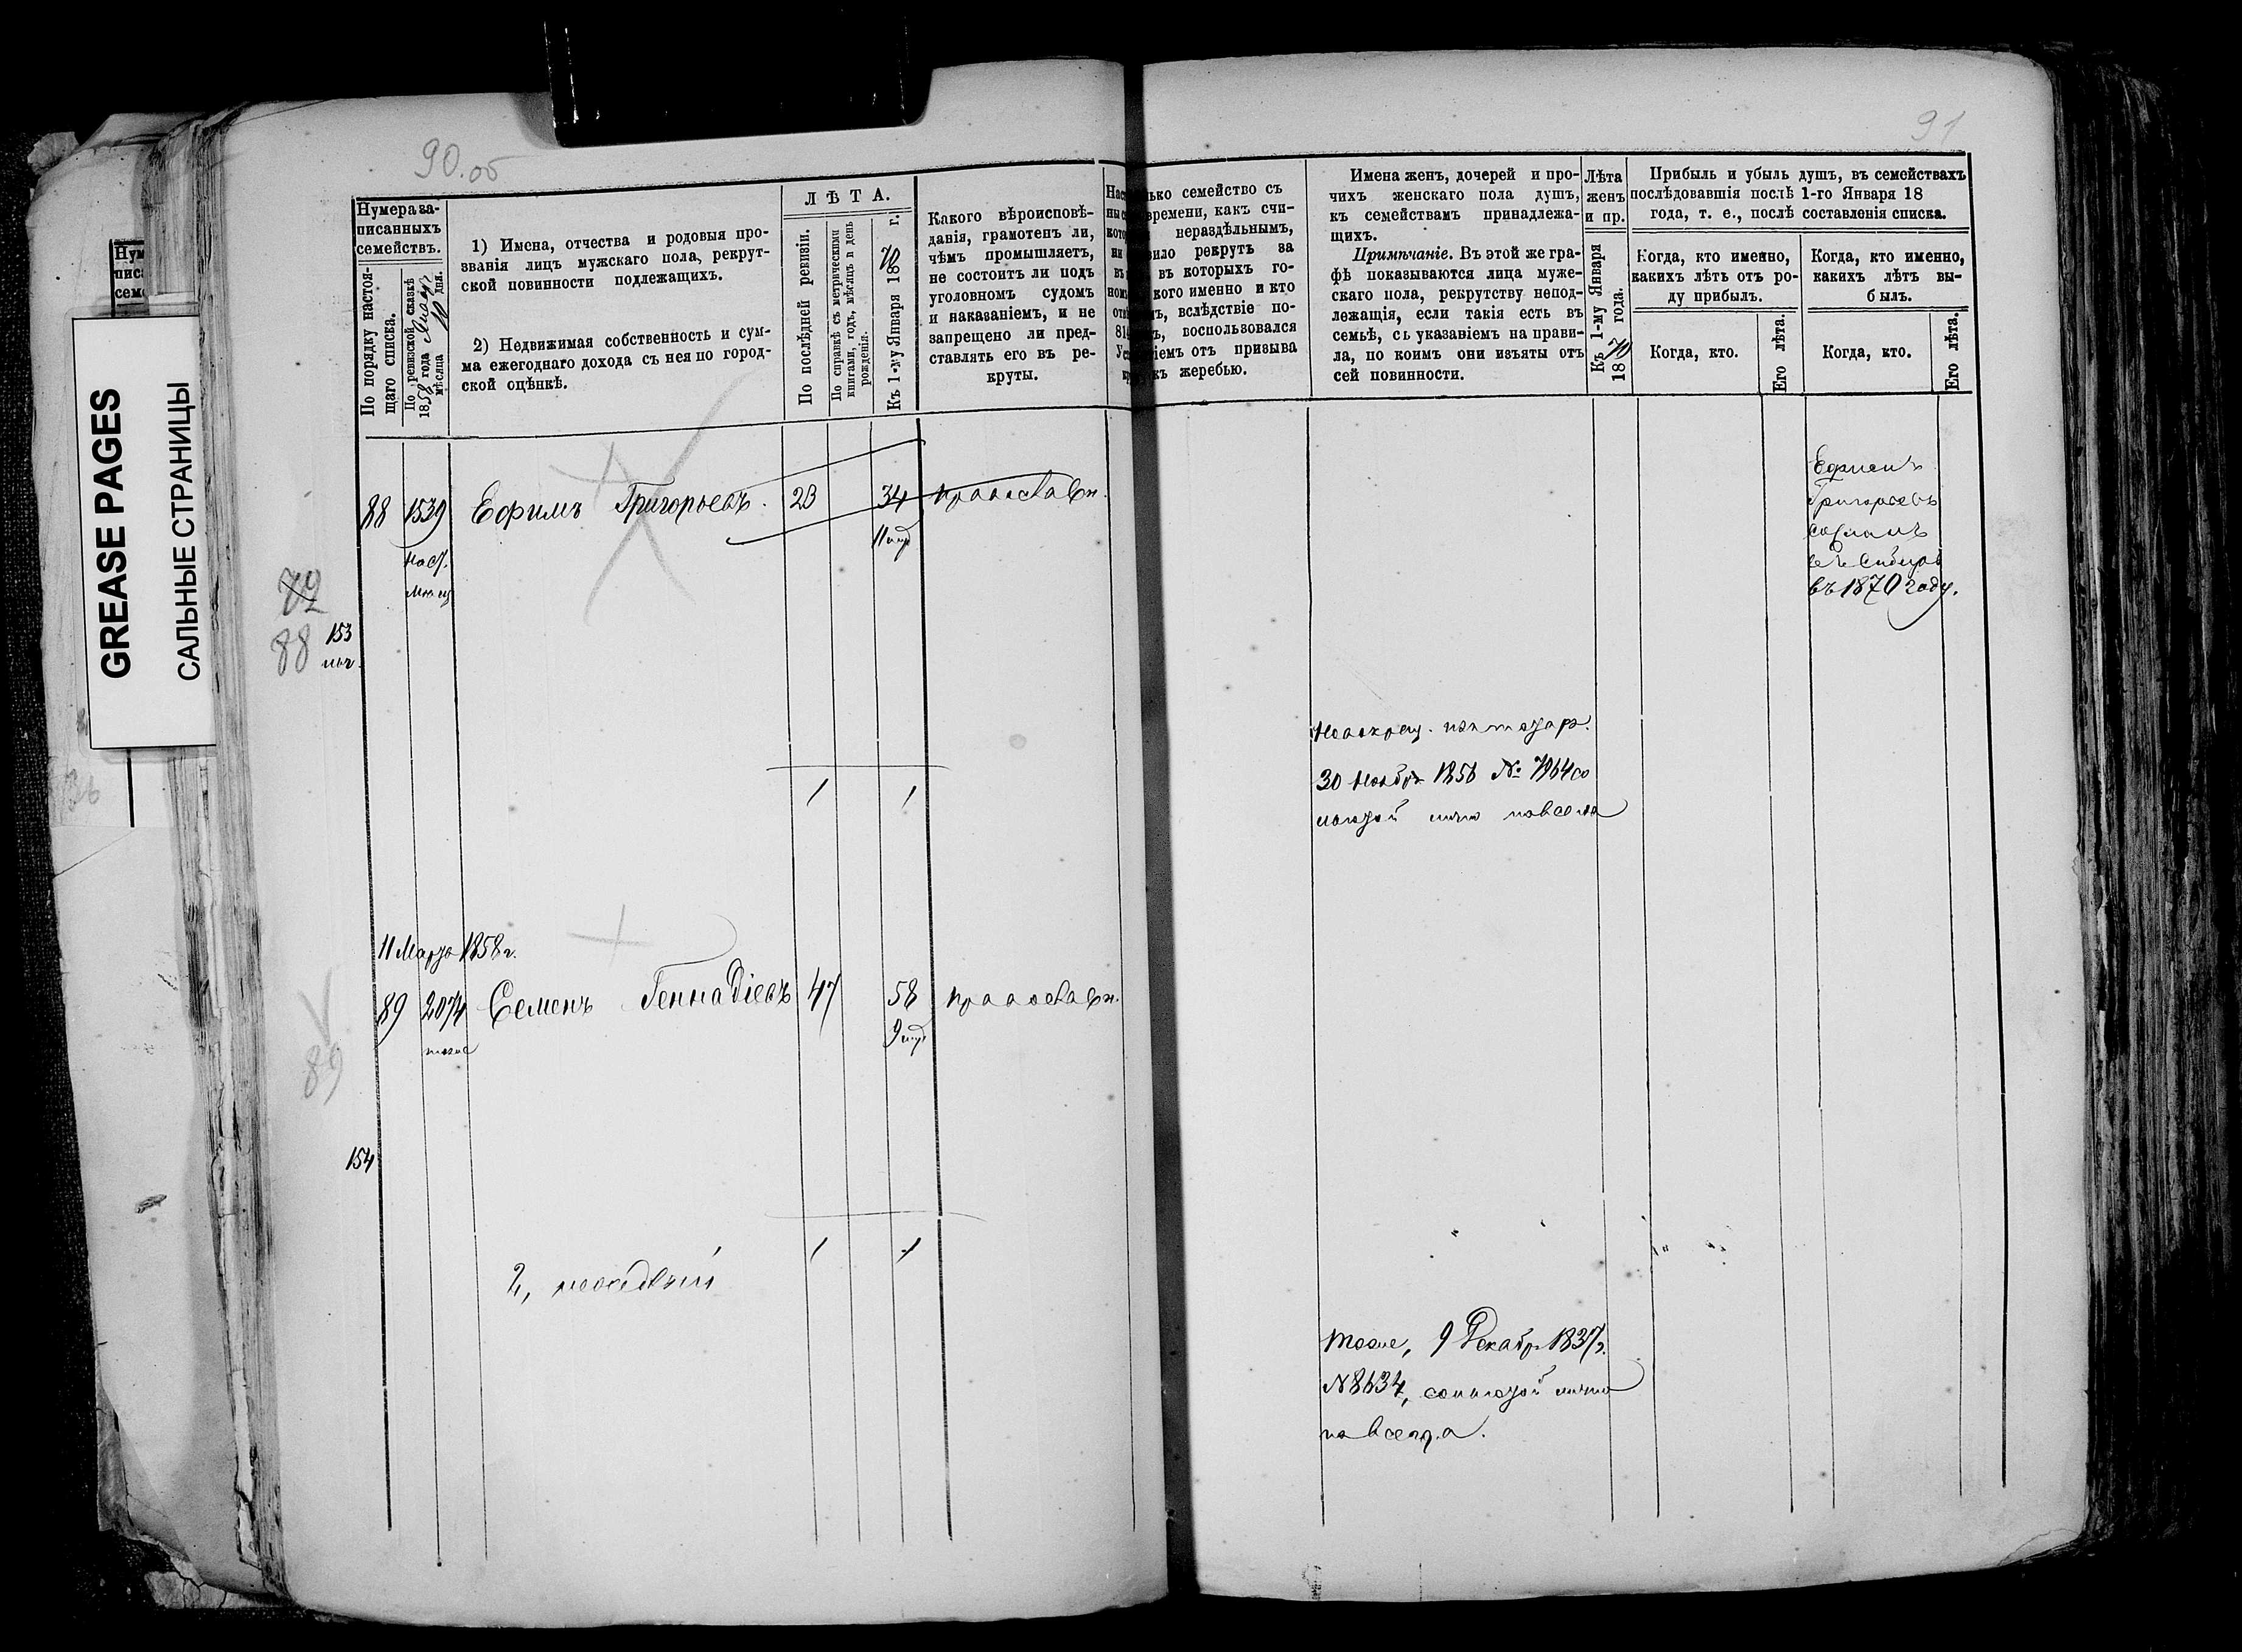 90.об
91
GREASE PAGES
САЛЬНЫЕ СТРАНИЦЫ
Нумера за-
писанныхъ
семействъ.
По порядку настоя-
щаго списка.
По ревизской сказкѣ
1858 года
мѣсяца 10 дня.
1) Имена, отчества и родовыя про-
званія лицъ мужскаго пола, рекрут-
ской повинности подлежащихъ.
2) Недвижимая собственность и сум-
ма ежегоднаго дохода съ нея по город-
ской оцѣнкѣ.
ЛѢТА.
По послѣдней ревизіи.
По справкѣ съ метрическими
книгами, годъ, мѣсяцъ и день
рожденія.
Къ 1-му Января 1870 г.
Какого вѣроисповѣ-
данія, грамотенъ ли,
чѣмъ промышляетъ,
не состоитъ ли подъ
уголовномъ судомъ
и наказаніемъ, и не
запрещено ли пред-
ставлять его въ ре-
круты.
семейство съ
времени, какъ счи-
нераздѣльнымъ,
рекрутъ за
въ которыхъ го-
кого именно и кто
вслѣдствіе по-
воспользовался
отъ призыва
жеребью.
Имена женъ, дочерей и про-
чихъ женскаго пола душъ,
къ семействамъ принадлежа-
щихъ.
Примѣчаніе. Въ этой же гра-
фѣ показываются лица муже-
скаго пола, рекрутству непод-
лежащія, если такія есть въ
семьѣ, съ указаніемъ на прави-
ла, по коимъ они изъяты отъ
сей повинности.
Лѣта
женъ
и пр.
Къ 1-му Января
1870 года.
Прибыль и убыль душъ, въ семействахъ
послѣдовавшія послѣ 1-го Января 18
года, т. е., послѣ составленія списка.
Когда, кто именно,
какихъ лѣтъ отъ ро-
ду прибылъ.
Когда, кто именно,
какихъ лѣтъ вы-
былъ.
Когда, кто.
Его лѣта.
Когда, кто.
Его лѣта.
88 1539 Ефимъ Григорьевъ. 23 34 православн.
Ефимъ
Григорьевъ
сосланъ
въ Сибирь
въ 1870 году.
88 153
30 Ноябр 1856 №
1 1
11 Марта 1858 г.
89 2074 Семенъ Геннадіевъ 47 58 православн.
тоже
89
154
1 1
2,
тоже, 9 Декабр 1837 г.
N 8634,
навсегда.